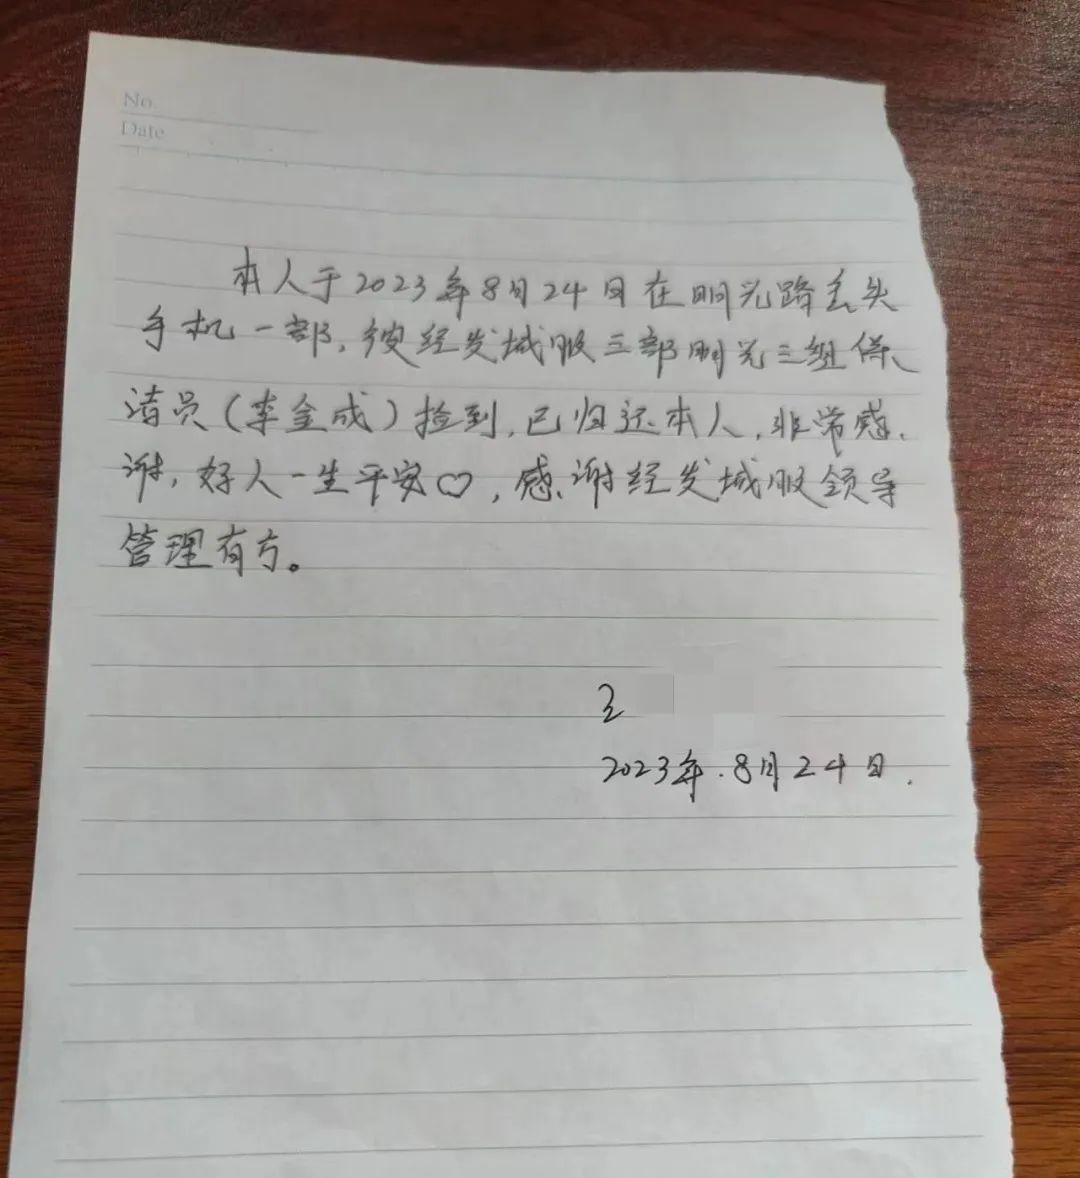 No.
Date
本人于2023年8月24日在明光路丢失
手机一部,被经发城服三部明光三组保
洁员(李金成)捡到,已归还本人,非常感
谢,好人一生平安♡,感谢经发城服领导
管理有方。
王
2023年.8月24日.